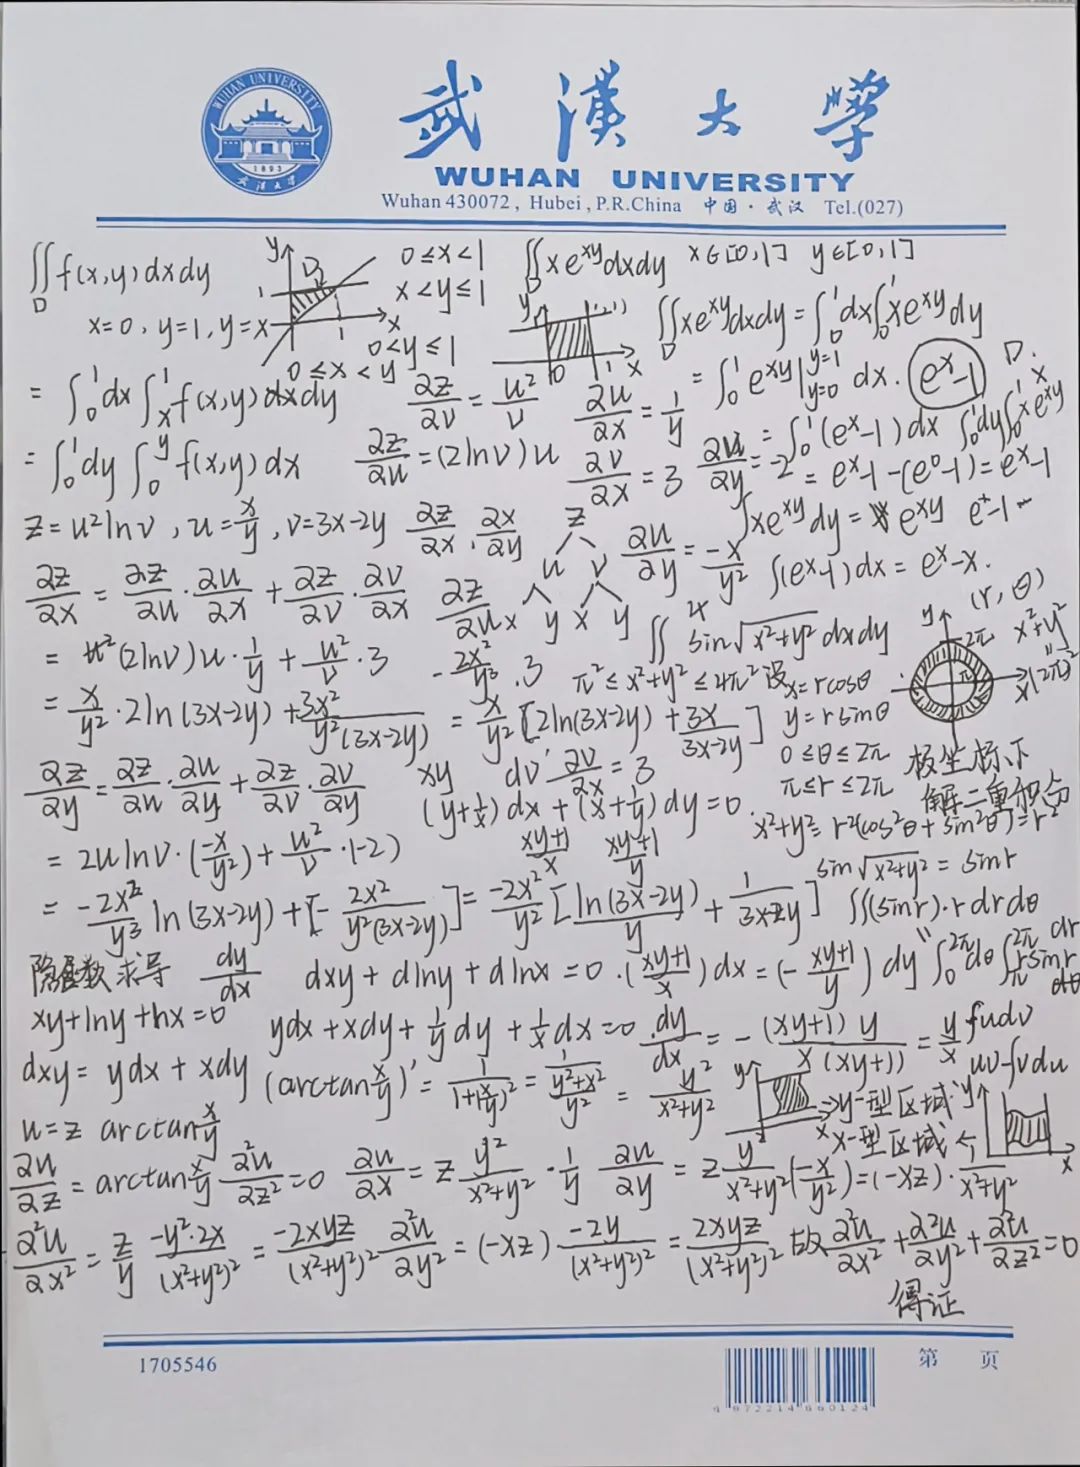 WUHAN UNIVERSITY
1893
武汉大学
武漢大学
WUHAN UNIVERSITY
Wuhan 430072, Hubei, P.R.China 中国·武汉 Tel.(027)
∬f(x,y)dxdy
D
x=0, y=1, y=x
y D 1 1 x
0≤x<1
x<y≤1
0<y≤1
0≤x<y
∬xe^{xy}dxdy x∈[0,1] y∈[0,1]
D
y 0 1 x
∬xe^{xy}dxdy=∫₀¹dx∫₀¹xe^{xy}dy
D
=∫₀¹e^{xy}|_{y=0}^{y=1} dx. e^x-1 D.
=∫₀¹(e^x-1)dx ∫₀¹dy∫₀¹xe^{xy}
=e^x-1-(e^0-1)=e^x-1
∫xe^{xy}dy= e^{xy} e^x-1
∫(e^x-1)dx=e^x-x.
=∫₀¹dx∫ₓ¹f(x,y)dxdy
=∫₀¹dy∫₀^y f(x,y)dx
∂z/∂v=u²/v ∂u/∂x=1/y
∂z/∂u=(2lnv)u ∂v/∂x=3 ∂u/∂y=-2
z=u²lnv, u=x/y, v=3x-2y ∂z/∂x, ∂x/∂y
z
u v
x y x y
∂u/∂y=-x/y²
∂z/∂x=∂z/∂u·∂u/∂x+∂z/∂v·∂v/∂x ∂z/∂u
=u²(2lnv)u·1/y+u²/v·3 -2x²/y³·3
=x/y²·2ln(3x-2y)+3x²/y²(3x-2y)=x/y²[2ln(3x-2y)+3x/3x-2y]
∂z/∂y=∂z/∂u·∂u/∂y+∂z/∂v·∂v/∂y xy dv ∂v/∂x=3
=2ulnv·(-x/y²)+u²/v·(-2)
=-2x²/y³ ln(3x-2y)+[-2x²/y²(3x-2y)]=-2x²/y²[ln(3x-2y)/y+1/3x-2y]
∬sin√x²+y² dxdy
π²≤x²+y²≤4π² 设x=rcosθ
y=rsinθ
0≤θ≤2π
π≤r≤2π
y (r,θ) 2π π x
x²+y²
"
(2π)²
极坐标下
解二重积分
x²+y²=r²(cos²θ+sin²θ)=r²
sin√x²+y²=sinr
∬(sinr)·rdrdθ
"
∫₀^{2π}dθ∫_π^{2π}rsinr dr
dθ
(y+1/x)dx+(x+1/y)dy=0.
xy+1/x xy+1/y
隐函数求导 dy/dx dxy+dlny+dlnx=0.(xy+1/x)dx=(-xy+1/y)dy
xy+lny+lnx=0 ydx+xdy+1/y dy+1/x dx=0 dy/dx=-(xy+1)y/x(xy+1)=y/x
∫udv
uv-∫vdu
dxy=ydx+xdy (arctan x/y)'=1/1+(x/y)²=1/(y²+x²/y²)=y²/x²+y²
y x y-型区域 y
x-型区域 x
u=z arctan x/y
∂u/∂z=arctan x/y ∂²u/∂z²=0 ∂u/∂x=z y²/x²+y²·1/y ∂u/∂y=z y²/x²+y²(-x/y²)=(-xz)·1/x²+y²
∂²u/∂x²=z/y -y²·2x/(x²+y²)²=-2xyz/(x²+y²)² ∂²u/∂y²=(-xz)-2y/(x²+y²)²=2xyz/(x²+y²)² 故∂²u/∂x²+∂²u/∂y²+∂²u/∂z²=0
得证
1705546
第 页